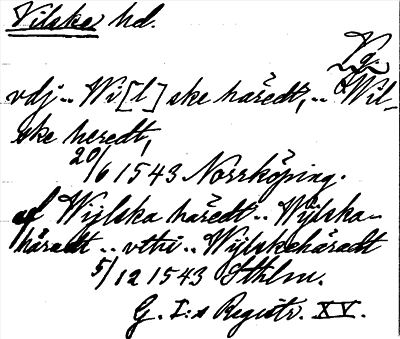 Vilska hd.
Vg.
vdj .. Wi[l] ske häredt, .. Wil-
ske heredt,
20/6 1543 Norrköping.
af Wijlska häredt .. Wijlska-
häradt .. vthi .. Wijlskehäradt
5/12 1543 Sthlm.
G. I:s Registr. XV.